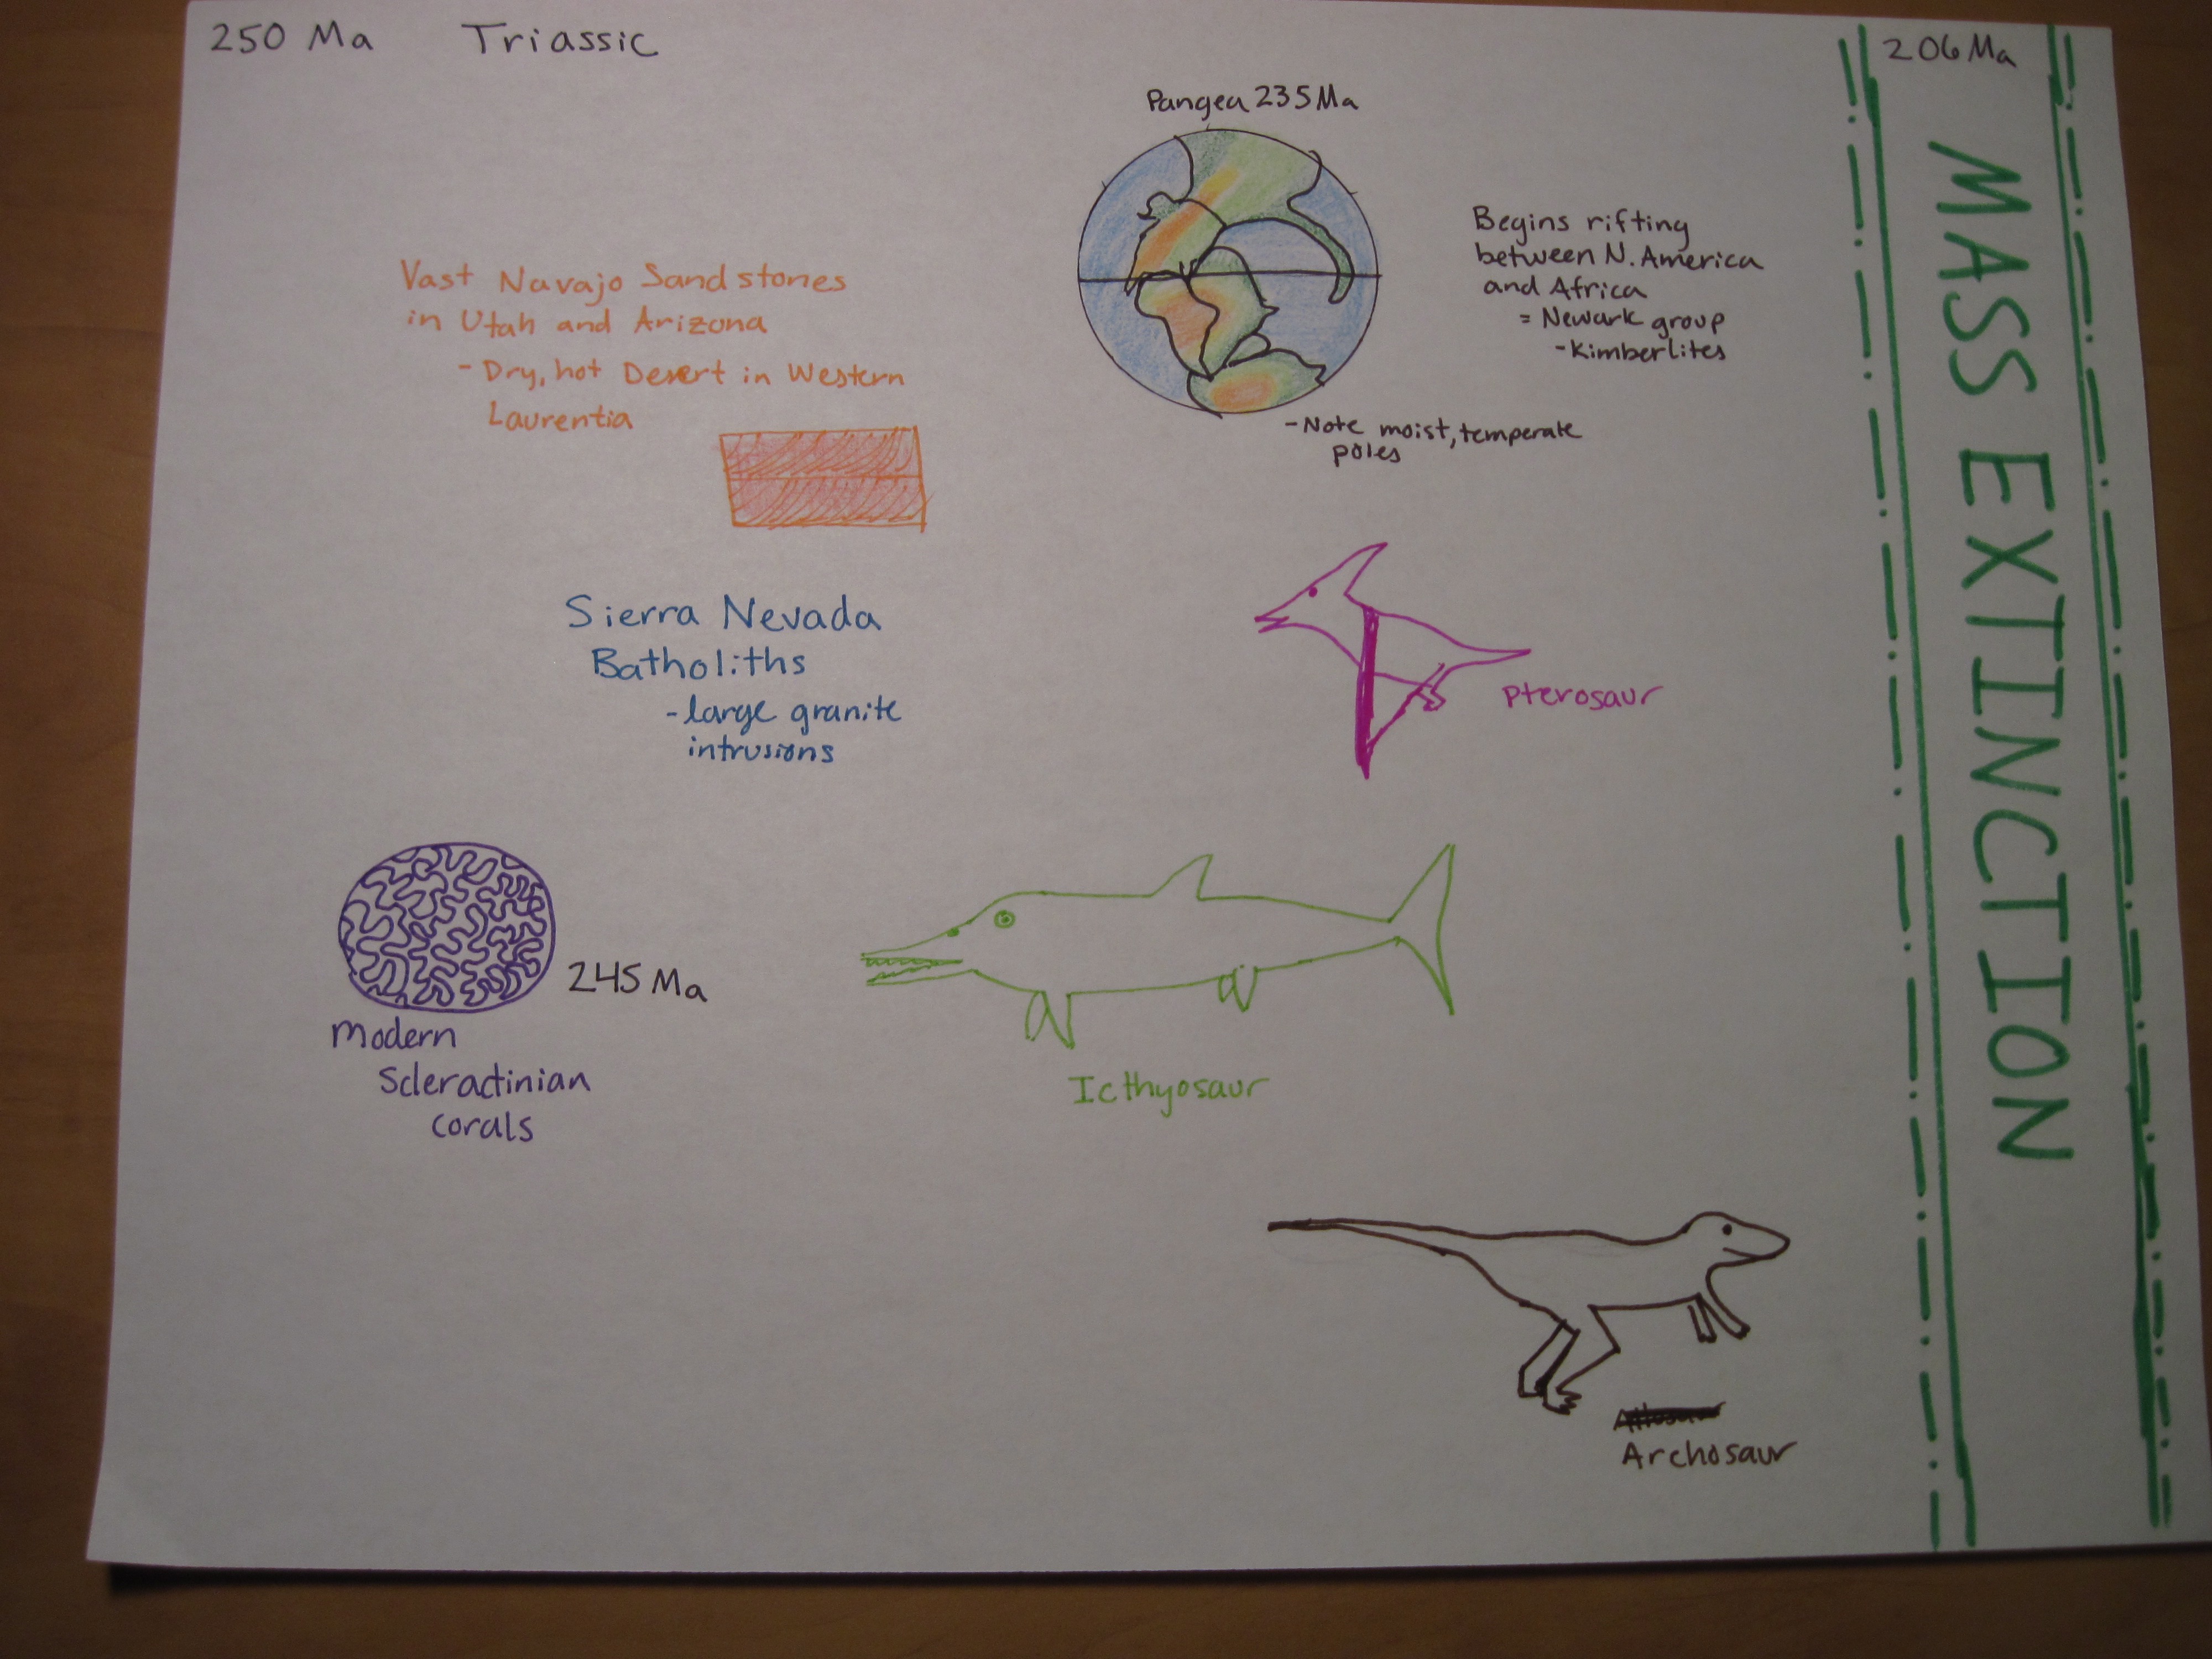 250 Ma Triassic
206 Ma
Pangea 235 Ma
Begins rifting
between N. America
and Africa
= Newark group
- Kimberlites
- Note moist, temperate
poles
Vast Navajo Sandstones
in Utah and Arizona
- Dry, hot Desert in Western
Laurentia
Sierra Nevada
Batholiths
- large granite
intrusions
Pterosaur
245 Ma
Modern
Scleractinian
corals
Icthyosaur
Archosaur
MASS EXTINCTION